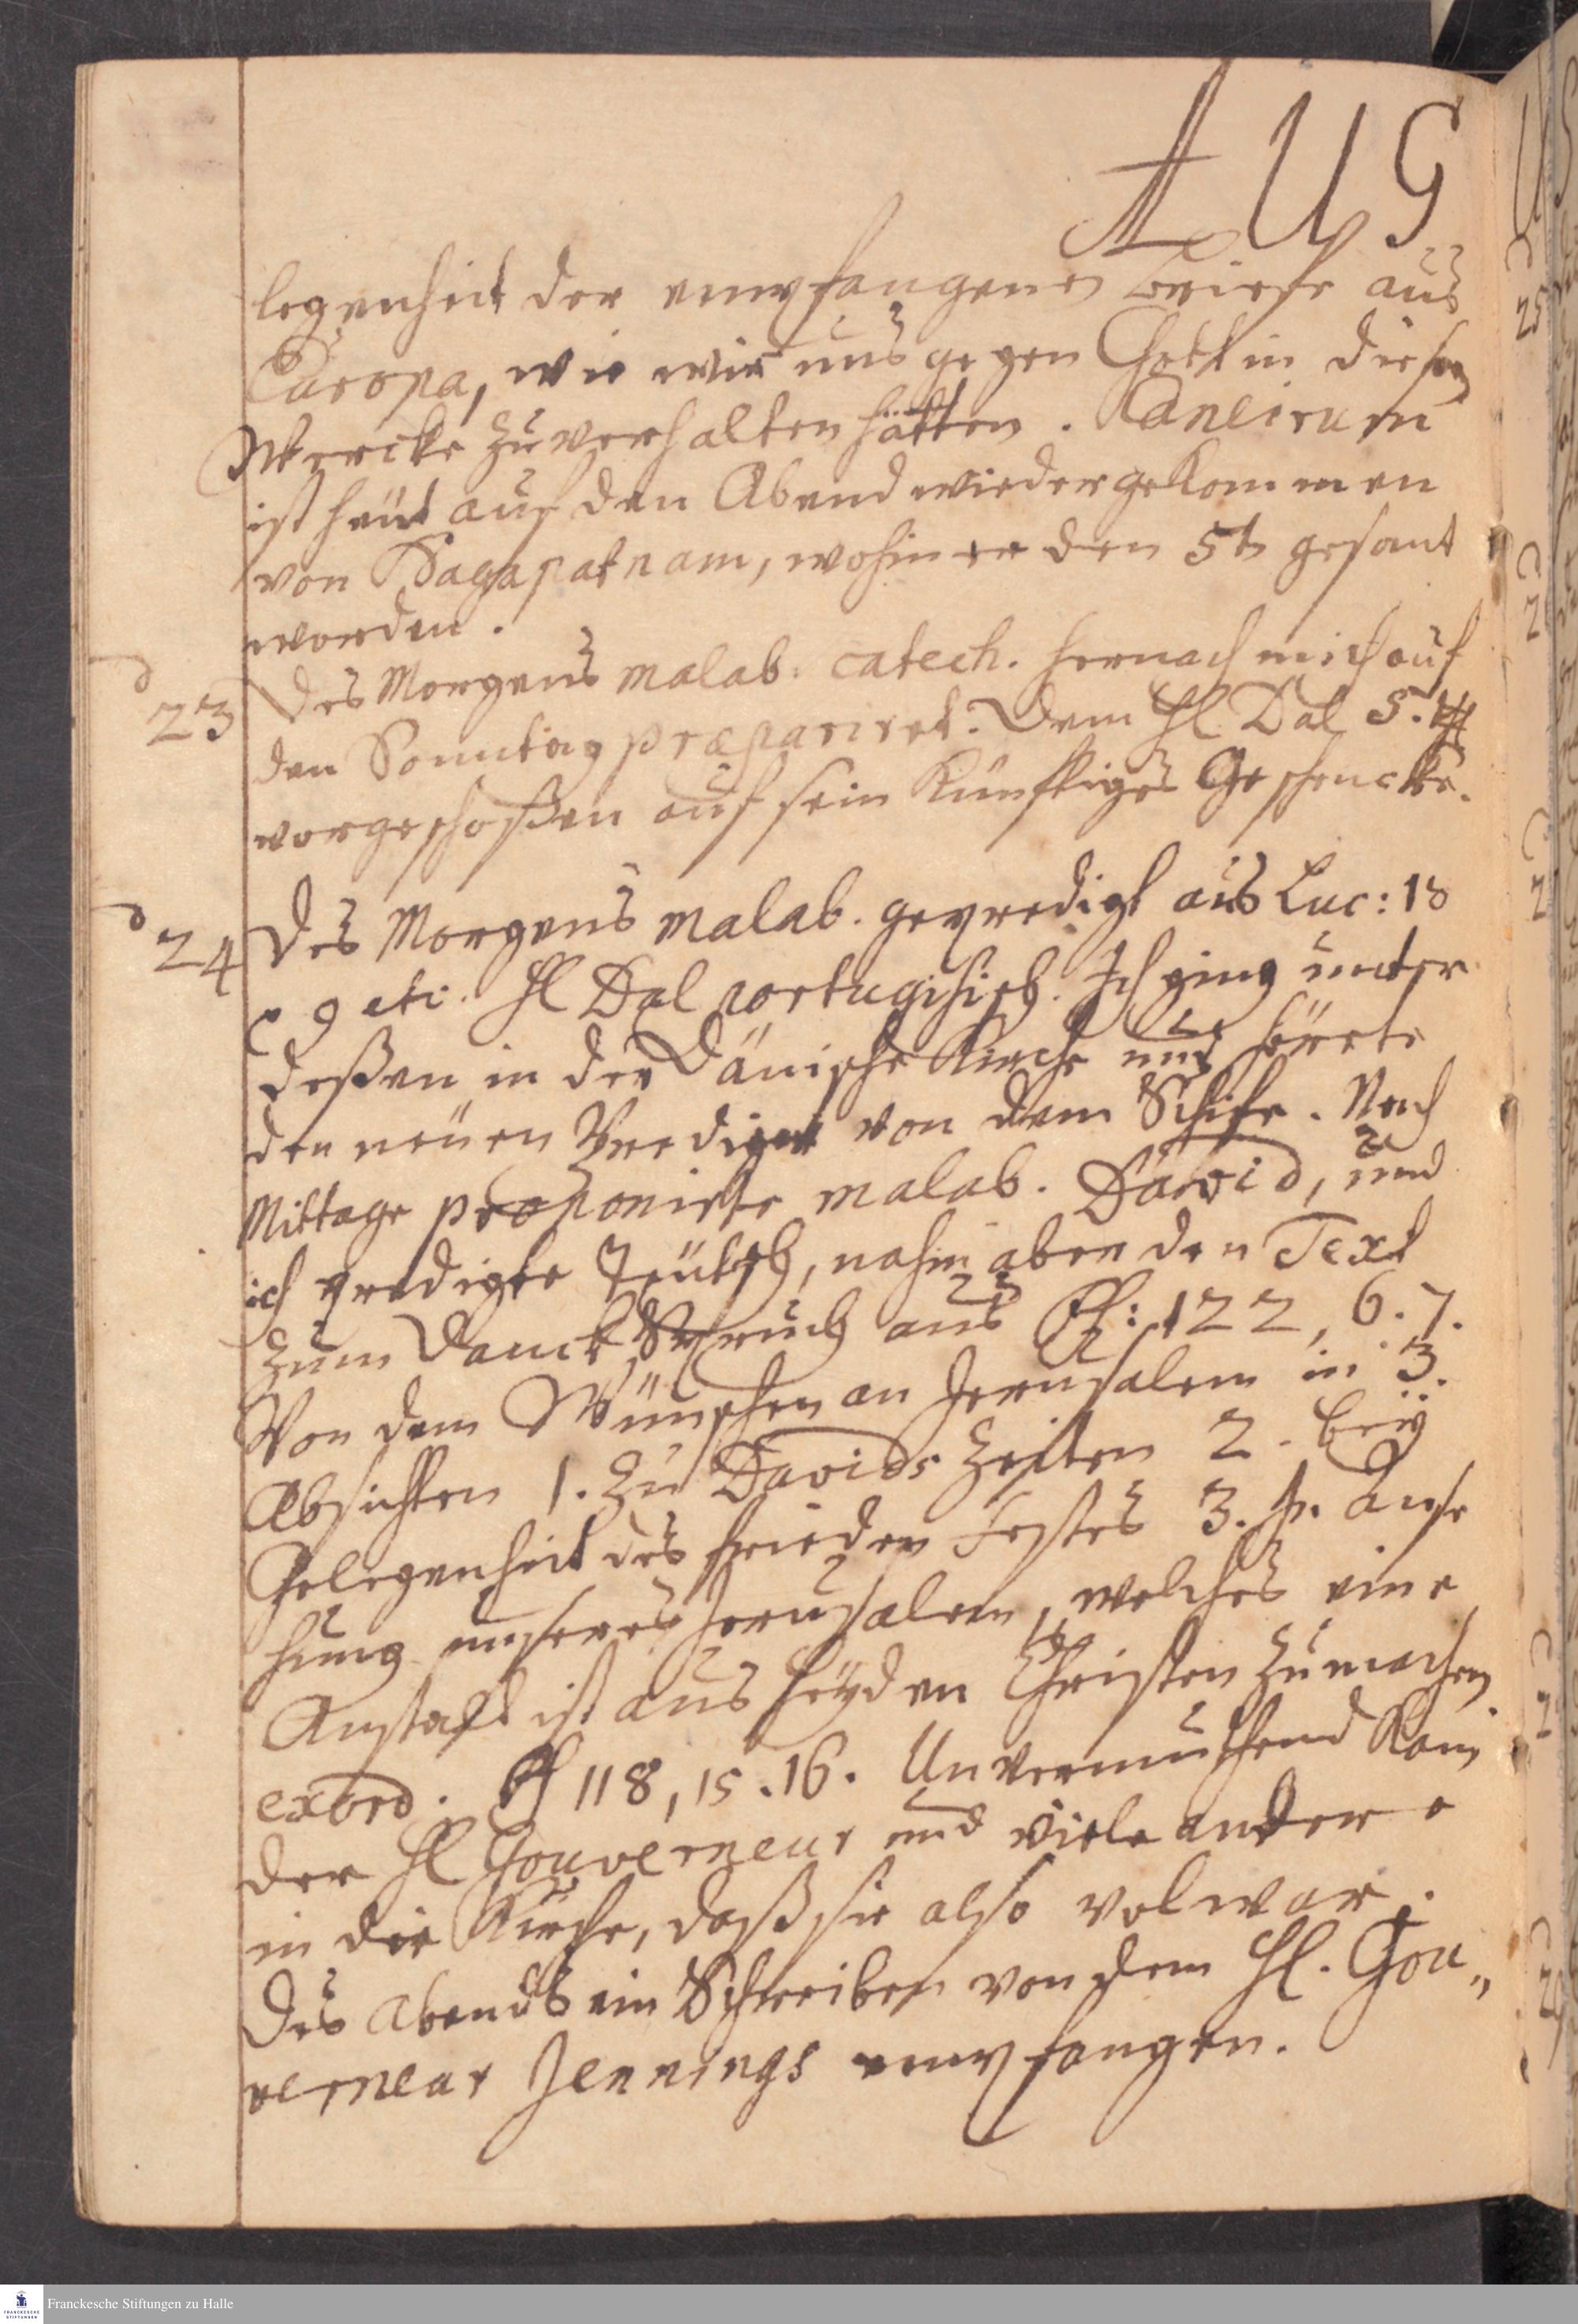 AUG
legenheit der empfangenen Briefe aus
Europa, wie wir uns gegen Gott in diesen
Wercke zu verhalten hätten.
ist heüt auf den Abend wieder gekommen
von Sadapatnam, wohin er den 5t gesant
worden.
d 23 Des Morgens malab. catech. hernach mich auf
den Sonntag præpariret. Dem Hl Dal 5.
vorgeschoßen auf sein künftiges Geschencke.
d 24 Des Morgens malab. gepredigt aus Luc: 18
v 9 etc. Hl Dal portugisisch. Ich ging unter
deßen in die Dänische Kirche und hörte
den neüen Prediger von dem Schife. Nach
Mittage proponirte malab. David, und
ich predigte Teütsch, nahm aber den Text
zum Danck Spruch aus Ps: 122, 6. 7.
Von dem Wünschen an Jerusalem in 3.
Absichten 1. Zu Davids Zeiten 2. beÿ
Gelegenheit des frieden Festes 3. in Anse
hung unseres Jerusalem, welches eine
Anstalt ist aus Heÿden Christen zu machen
exord. Ps 118, 15. 16. Unvermuthend kam
der Hl Gouverneur und viele andere
in die Kirche, daß sie also vol war.
Des Abends ein Schreiben von dem Hl. Gou„
verneur Jennings empfangen.
Franckesche Stiftungen zu Halle